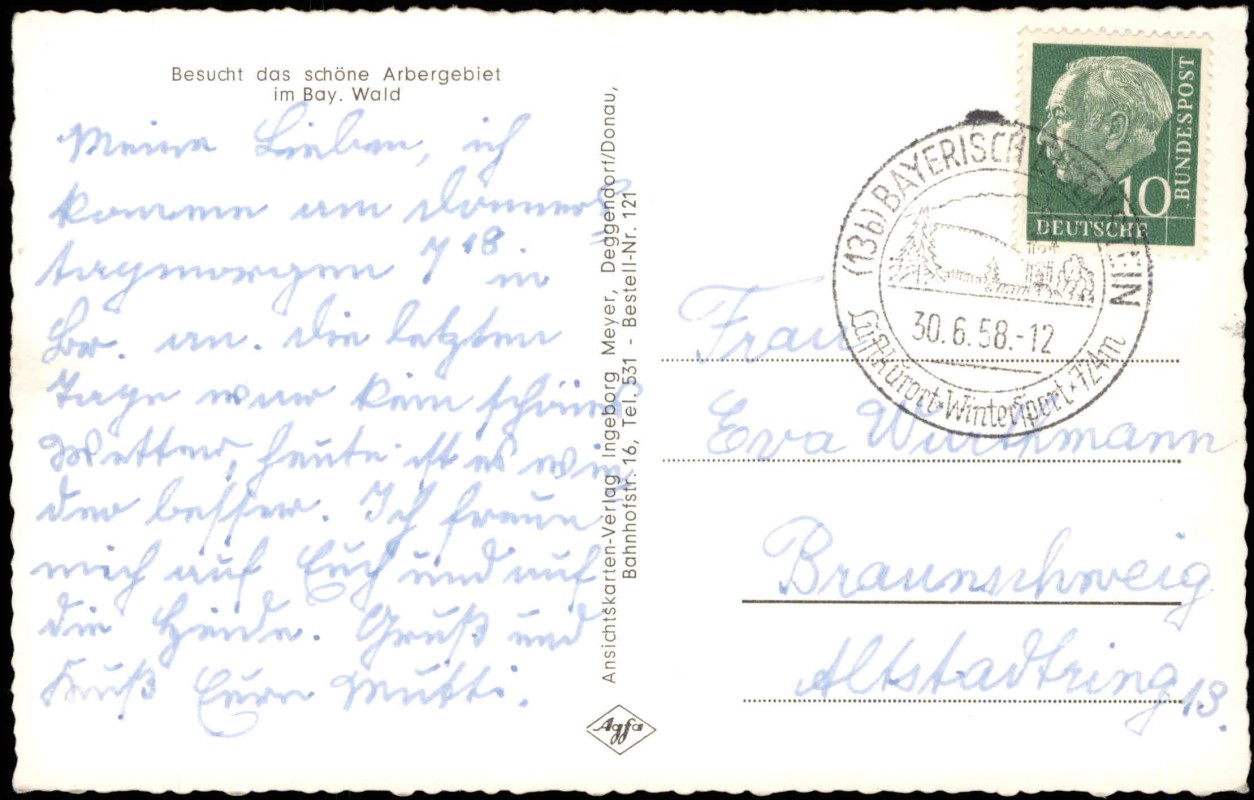 Besucht das schöne Arbergebiet
im Bay. Wald
Meine Lieben, ich
komme am Donners
tagmorgen 7 18 in
Br. an. Die letzten
Tage war kein schönes
Wetter, heute ist es wie
der besser. Ich freue
mich auf Euch und auf
die Heide. Gruß und
Kuß Eure Mutti.
Ansichtskarten-Verlag Ingeborg Meyer, Deggendorf/Donau,
Bahnhofstr. 16, Tel. 531 - Bestell-Nr. 121
Agfa
BUNDESPOST
10
DEUTSCHE
(13b) BAYERISCH EISENSTEIN
30.6.58.-12
Luftkurort·Wintersport·724m
Frau
Eva Wurthmann
Braunschweig
Altstadtring 13.